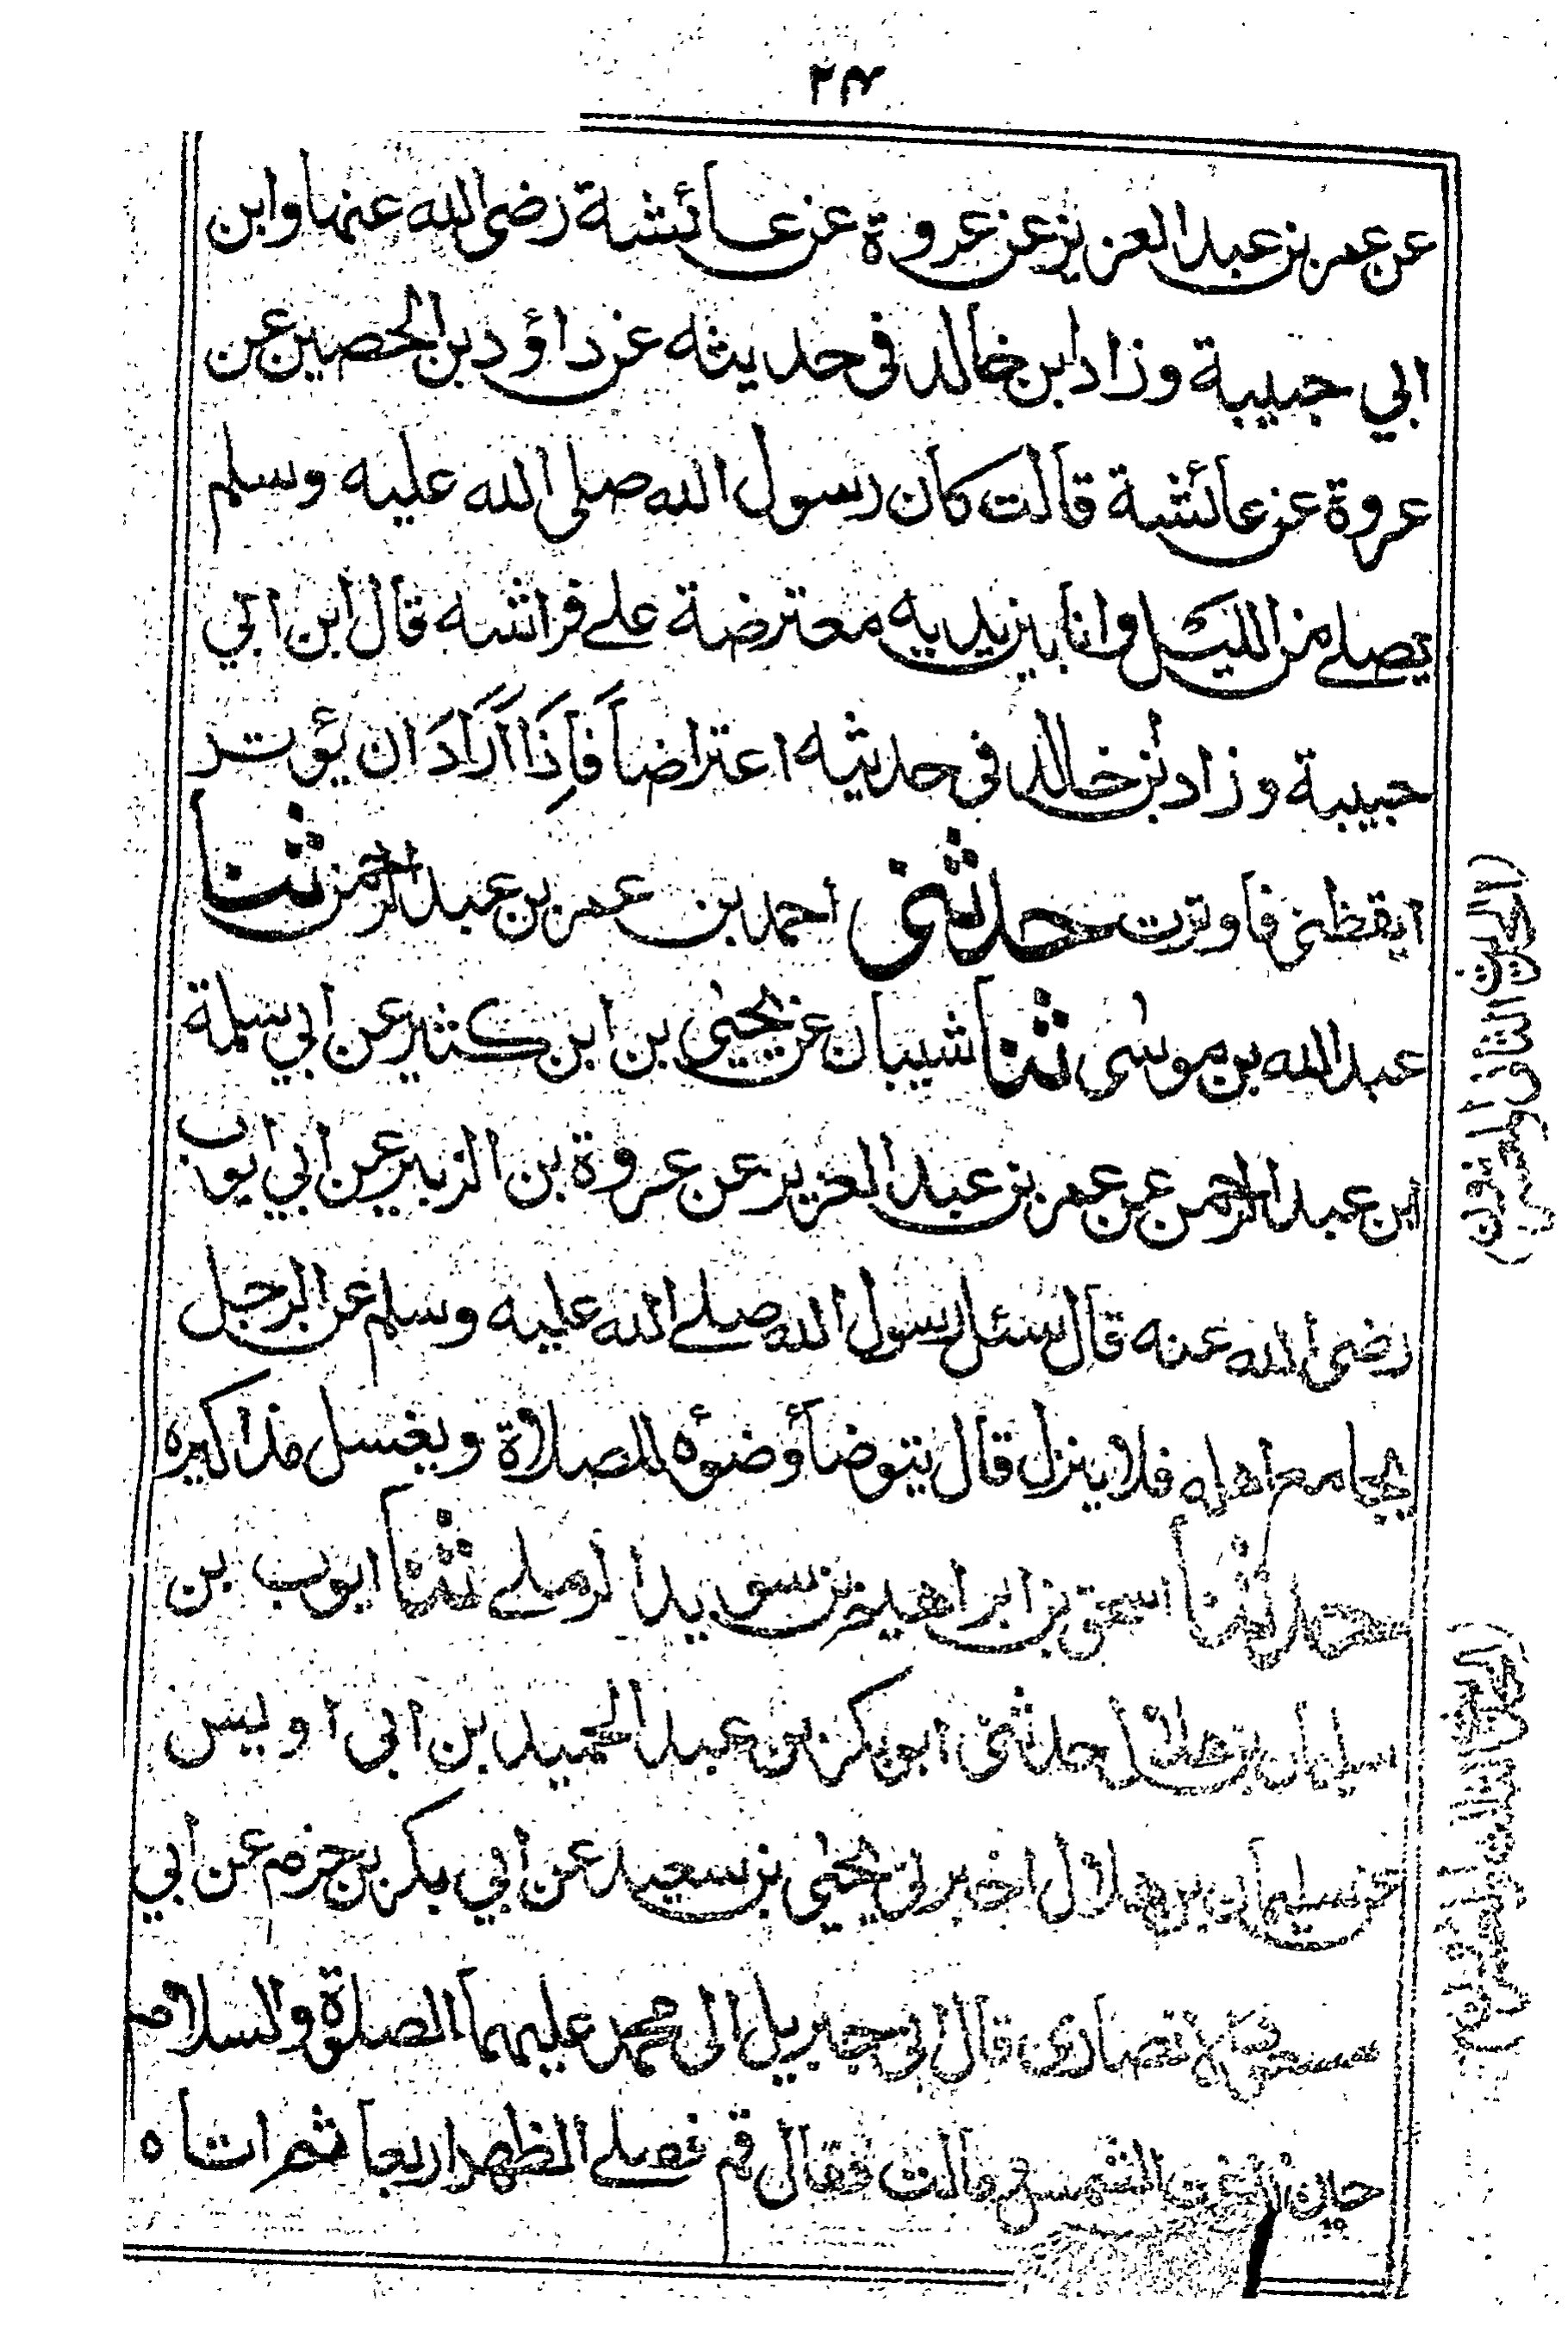 ٢٤
عن عمر بن عبد العزيز عن عروة عن عائشة رضی الله عنها وابن
ابي حبيبة وزاد ابن خالد فی حديثه عن داؤد بن الحصين عن
عروة عن عائشة قالت كان رسول الله صلی الله عليه وسلم
يصلے من الليل وانا بين يديه معترضة علے فراشه قال ابن ابي
حبيبة وزاد بن خالد فی حديثه اعتراضاً فاِذَا اَرَادَ ان يؤتر
ايقظنی فاوترت حدثنی احمد بن عمر بن عبد الرحمن ثنا
عبد الله بن موسٰی ثنا شيبان عن يحيیٰ بن ابن كثير عن ابي سلمة
ابن عبد الرحمن عن عمر بن عبد العزيز عن عروة بن الزبير عن ابي ايوب
رضی الله عنه قال سئل رسول الله صلے الله عليه وسلم عن الرجل
يجامع اهله فلا ينزل قال يتوضأ وضوٗه للصلاة ويغسل مذاكيره
حدثنا اسحق بن ابراهيم بن سويد الرملے ثنا ايوب بن
سليمان بن هلال حدثنی ابو بكر بن عبد الحميد بن ابی اويس
عن سليمان بن هلال اخبرنی يحيیٰ بن سعيد عن ابي بكر بن حزم عن ابي
الانصاری قال اتی جبريل الی محمد عليهما الصلوة والسلام
حين الشمس ومالت فقال قم فصلے الظهر اربعا ثم اتاه
(الحديث الثانی والعشرون)